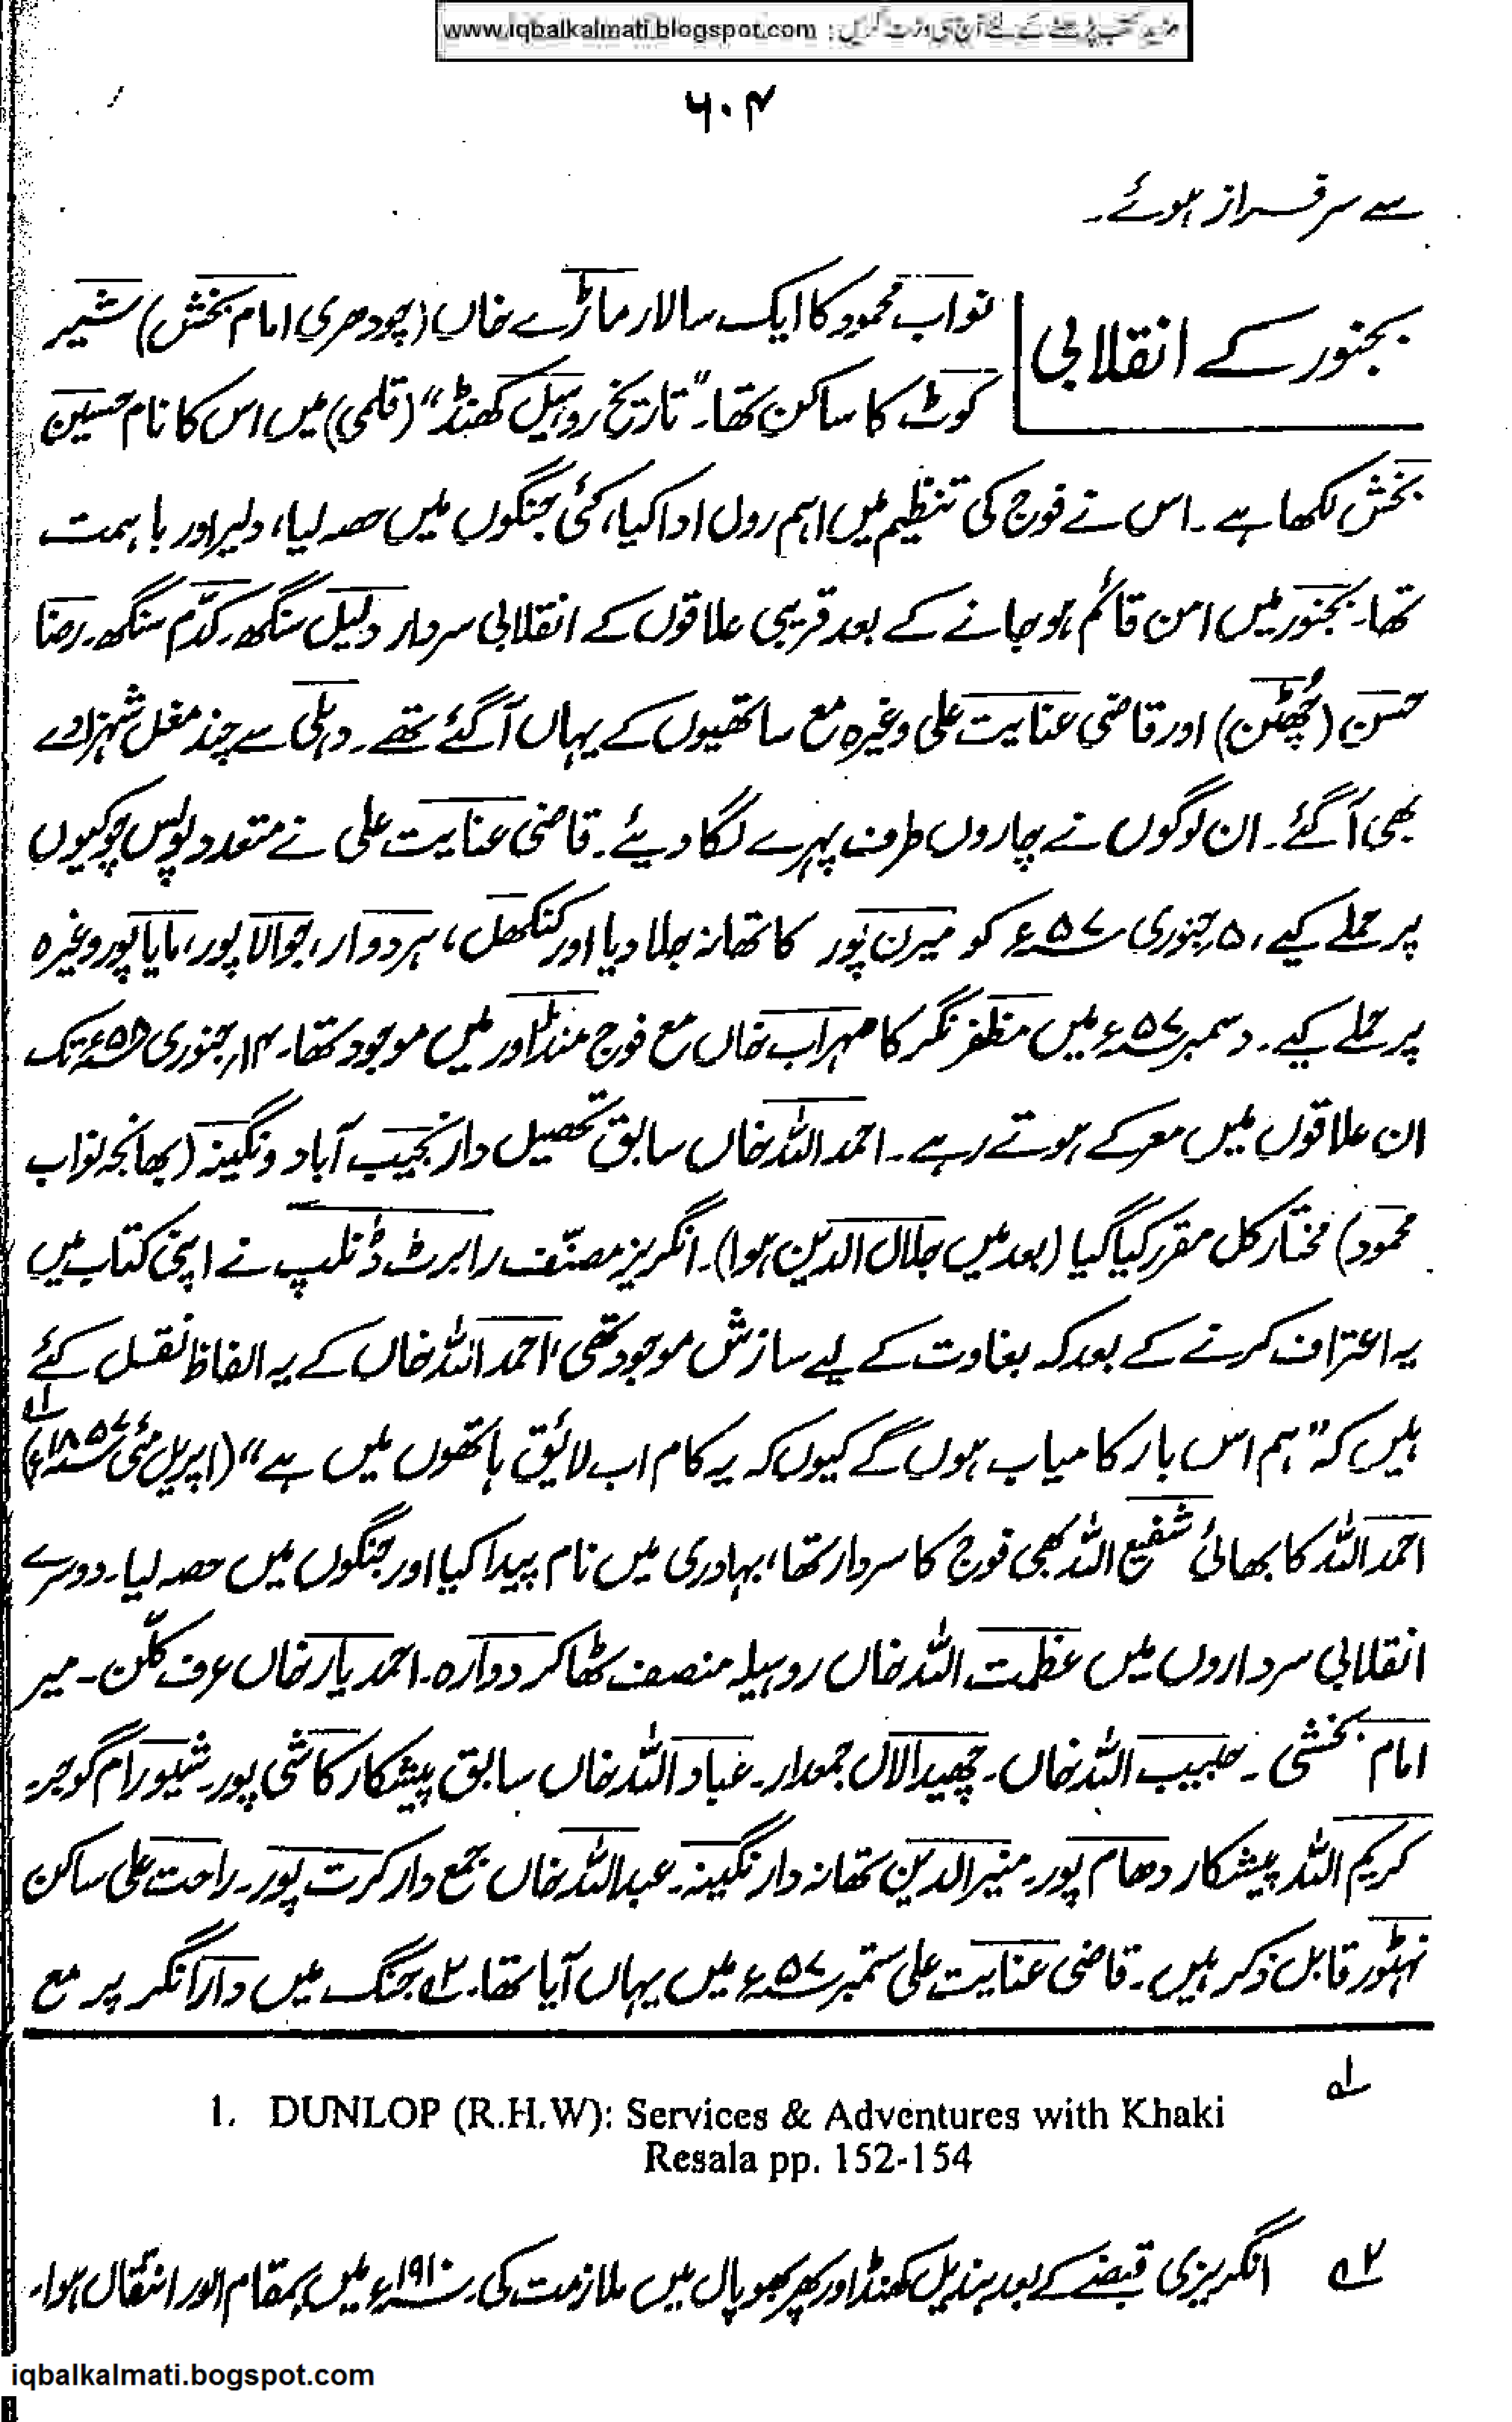 مزید کتب پڑھنے کے لئے آج ہی وزٹ کریں : www.iqbalkalmati.blogspot.com
۶۰۴
سے سرفراز ہوئے۔
بجنور کے انقلابی
نواب محمود کا ایک سالار ماڑے خاں (چودھری امام بخش) شیر
کوٹ کا ساکن تھا۔ "تاریخ روہیل کھنڈ" (قلمی) میں اس کا نام حسین
بخش لکھا ہے۔ اس نے فوج کی تنظیم میں اہم رول ادا کیا، کئی جنگوں میں حصہ لیا، دلیر اور باہمت
تھا۔ بجنور میں امن قائم ہو جانے کے بعد قریبی علاقوں کے انقلابی سردار دلیل سنگھ۔ کدّم سنگھ۔ رضا
حسن (چُھٹن) اور قاضی عنایت علی وغیرہ مع ساتھیوں کے یہاں آگئے تھے۔ دہلی سے چند مغل شہزادے
بھی آگئے۔ ان لوگوں نے چاروں طرف پہرے لگا دیئے۔ قاضی عنایت علی نے متعدد پولس چوکیوں
پر حملے کیے، ۵ جنوری ۵۷ء کو میرن پور کا تھانہ جلا دیا اور کنکھل، ہردوار، جوالا پور، مایا پور وغیرہ
پر حملے کیے۔ دسمبر ۵۷ء میں مظفر نگر کا مہراب خاں مع فوج منڈاور میں موجود تھا۔ ۱۴؍ جنوری ۵۸ء تک
ان علاقوں میں معرکے ہوتے رہے۔ احمد اللہ خاں سابق تحصیل دار نجیب آباد و نگینہ (بھانجہ نواب
محمود) مختار کل مقرر کیا گیا (بعد میں جلال الدین ہوا)۔ انگریز مصنّف رابرٹ ڈنلپ نے اپنی کتاب میں
یہ اعتراف کرنے کے بعد کہ بغاوت کے لیے سازش موجود تھی، احمد اللہ خاں کے یہ الفاظ نقل کئے
ہیں کہ "ہم اس بار کامیاب ہوں گے کیوں کہ یہ کام اب لائق ہاتھوں میں ہے" (اپریل مئی ۱۸۵۷ء) ۱؎
احمد اللہ کا بھائی شفیع اللہ بھی فوج کا سردار تھا، بہادری میں نام پیدا کیا اور جنگوں میں حصہ لیا۔ دوسرے
انقلابی سرداروں میں عظمت اللہ خاں روہیلہ منصف ٹھاکر دوارہ۔ احمد یار خاں عرف کلّن۔ میر
امام بخشی۔ حبیب اللہ خاں۔ چھیدا لال جمعدار۔ عباد اللہ خاں سابق پیشکار کاشی پور۔ شیورام گوجر۔
کریم اللہ پیشکار دھام پور۔ منیر الدین تھانہ دار نگینہ۔ عبداللہ خاں جمع دار کرت پور۔ راحت علی ساکن
نہٹور قابل ذکر ہیں۔ قاضی عنایت علی ستمبر ۵۷ء میں یہاں آیا تھا۔ ۲؎ جنگ میں دارانگر پر مع
۱؎
1. DUNLOP (R.H.W): Services & Adventures with Khaki
Resala pp. 152-154
۲؎ انگریزی قبضے کے بعد بندیل کھنڈ اور پھر بھوپال میں ملازمت کی۔ ۱۹۱۰ء میں بمقام الور انتقال ہوا۔
iqbalkalmati.bogspot.com